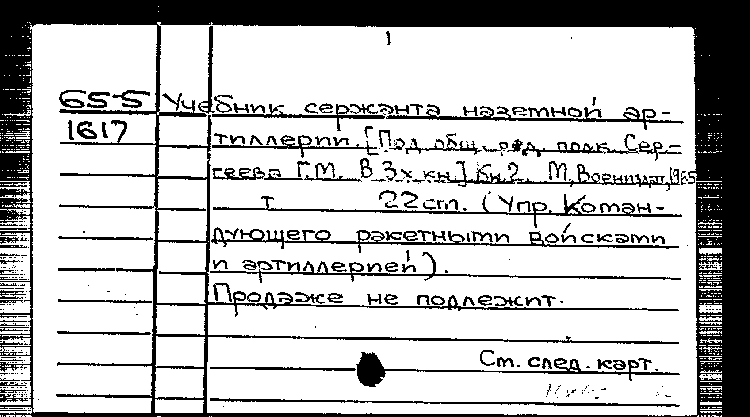 65-5 Учебник сержанта наземной ар-
1617 тиллерии. [Под общ. ред. полк. Сер-
геева Г.М. В 3х кн.] Кн.2. М, Воениздат, 1965
т 22 см. (Упр. Коман-
дующего ракетными войсками
и артиллерией).
Продаже не подлежит.
См. след. карт.